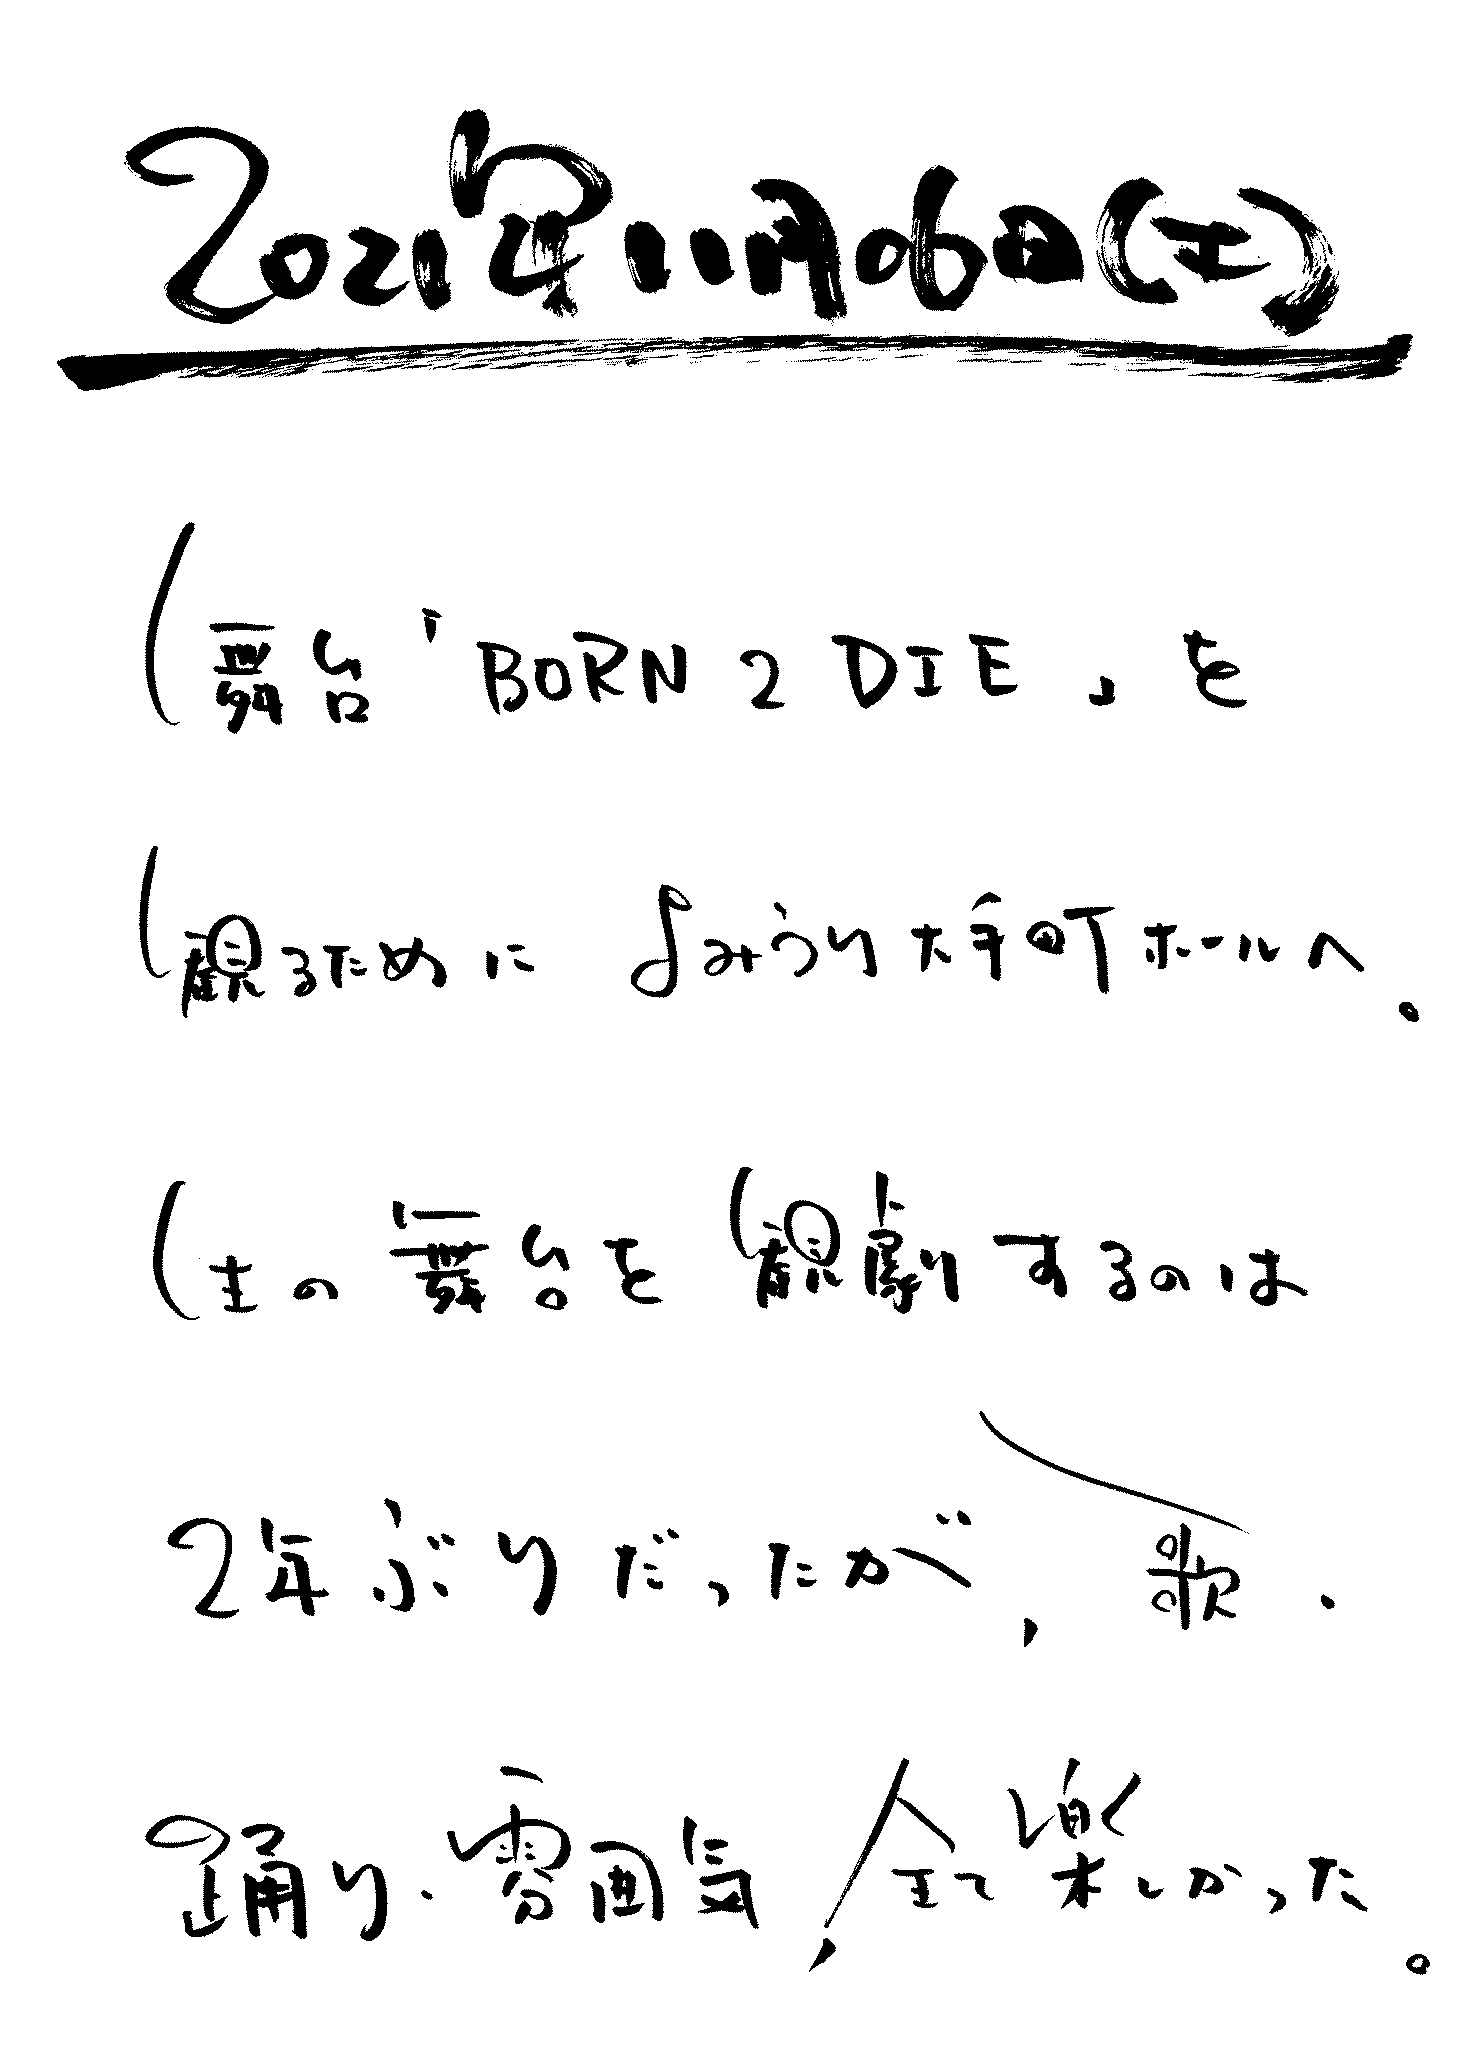 2021年11月06日(土)
舞台「BORN 2 DIE」を
観るために よみうり大手町ホールへ。
生の舞台を観劇するのは
2年ぶりだったが、歌・
踊り・雰囲気、全て楽しかった。